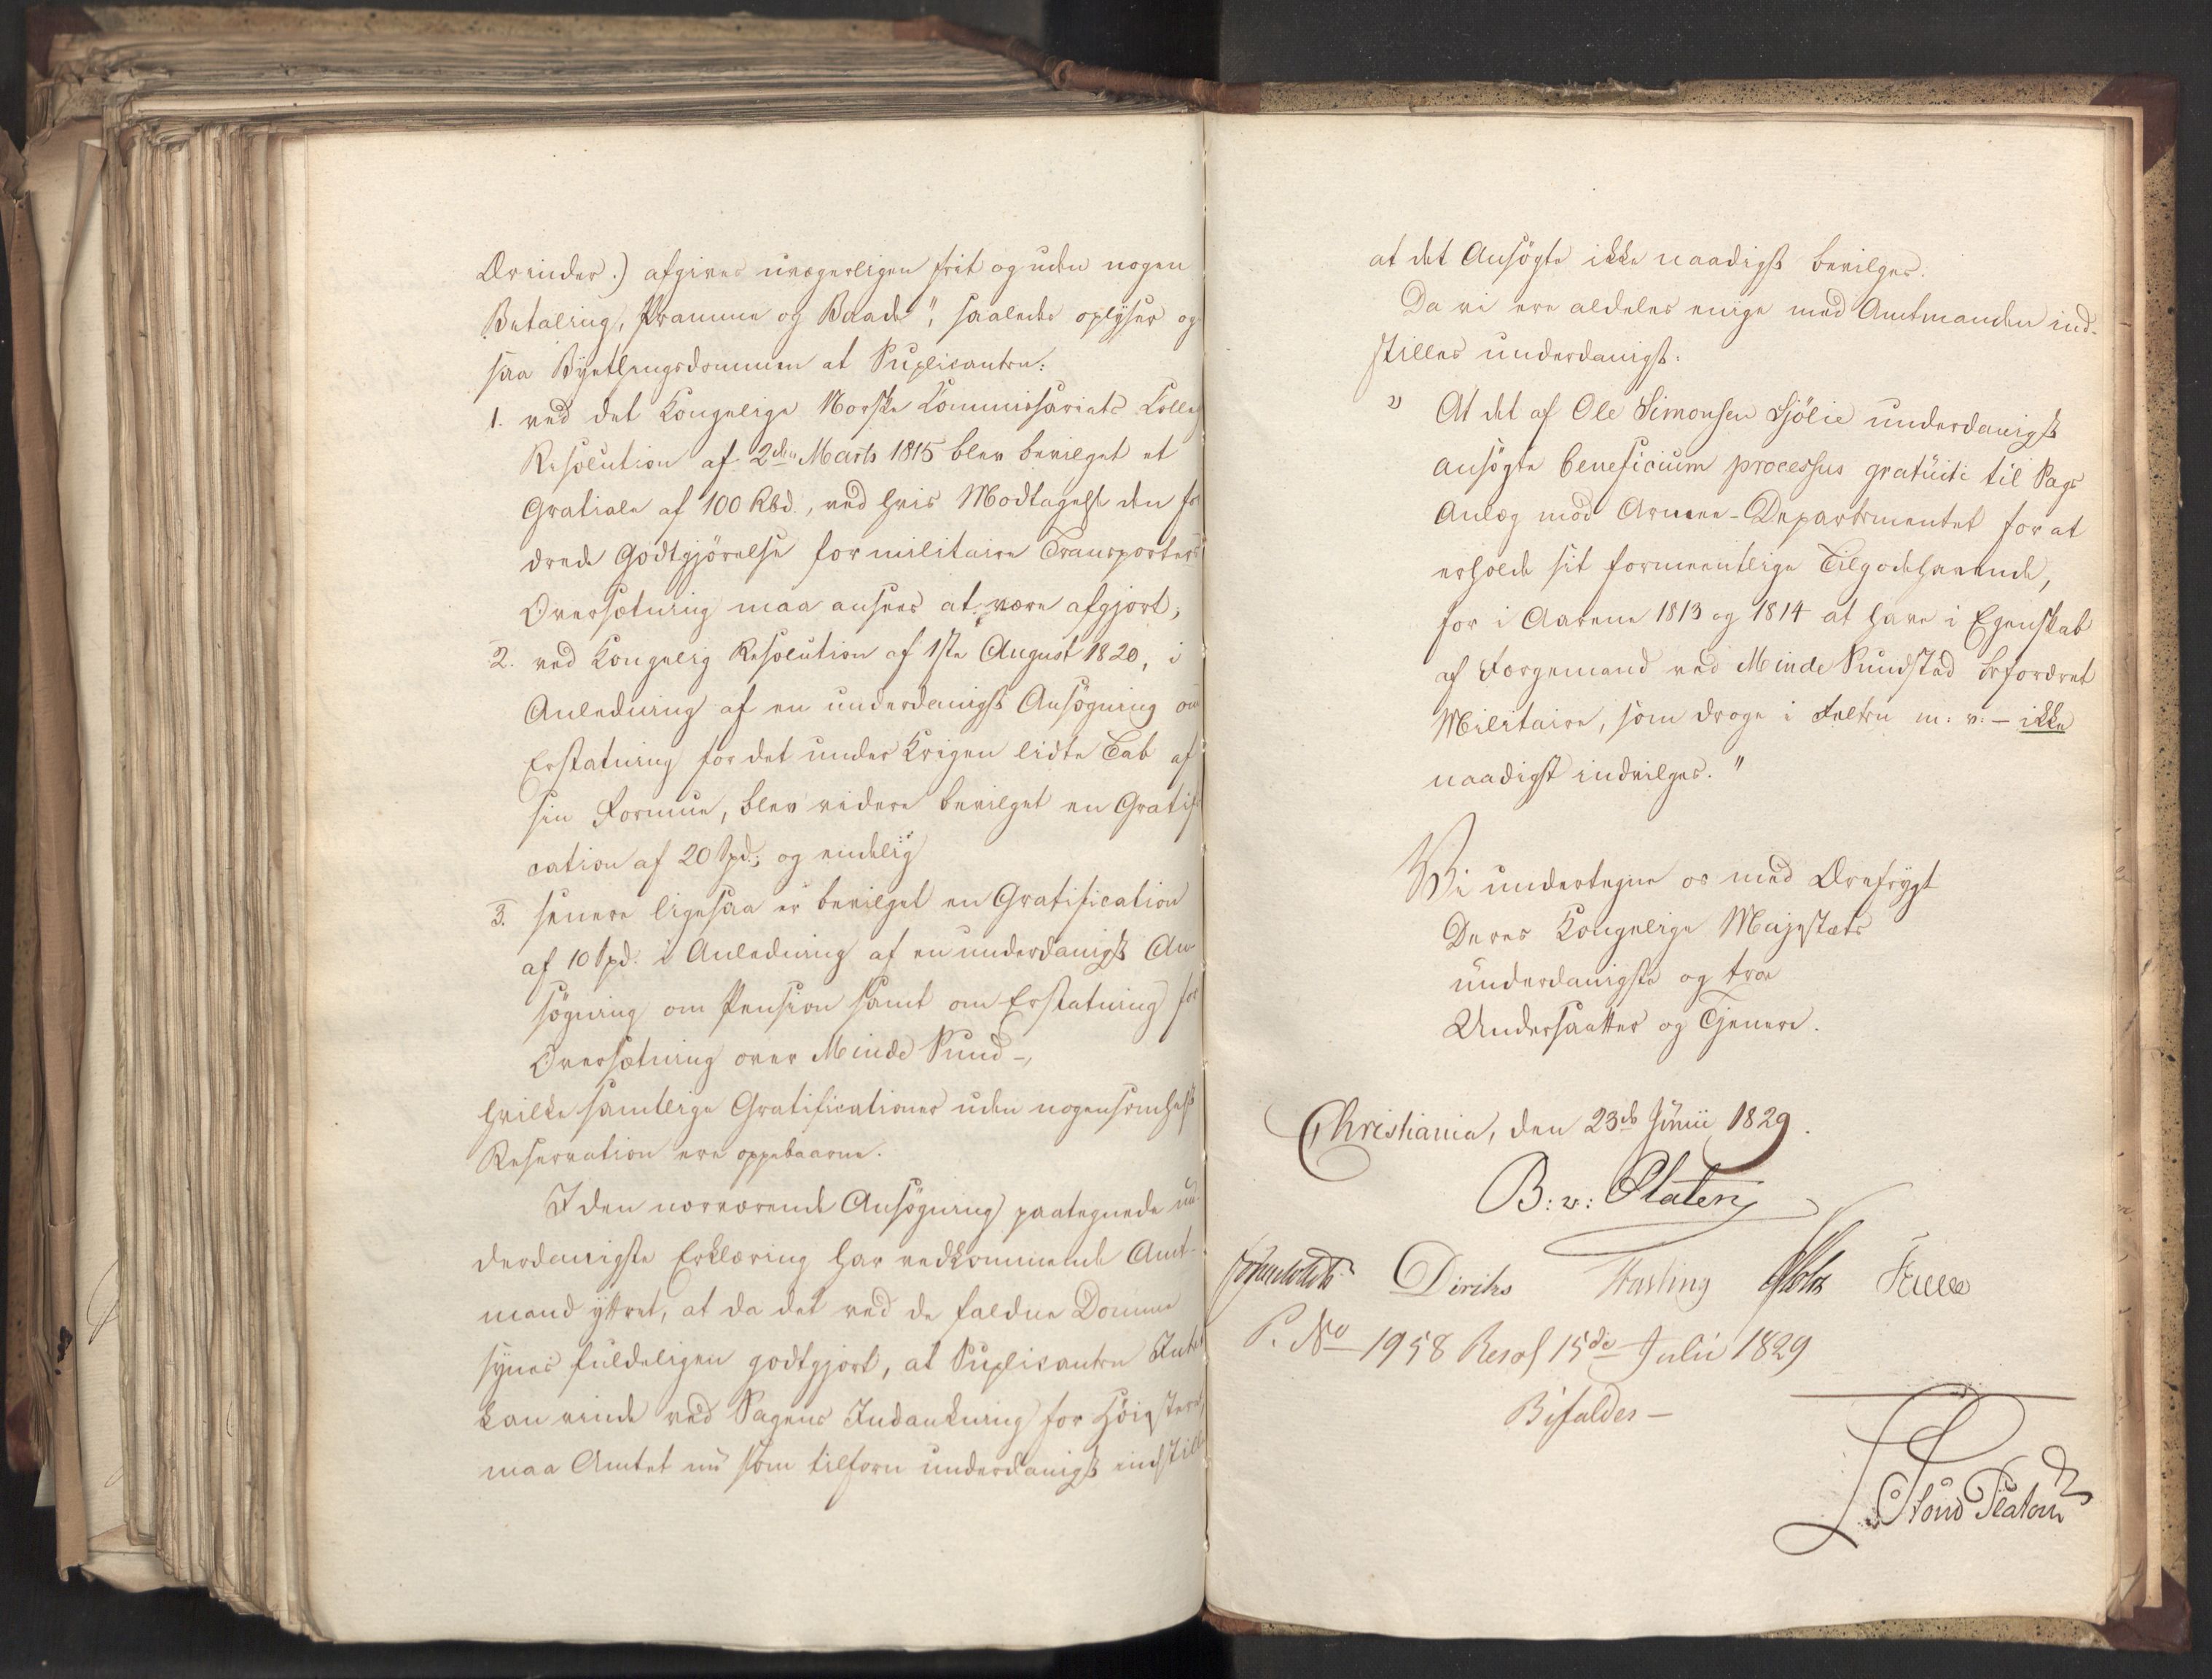 Ærinder.) afgives uvægerligen frit og uden nogen
Betaling, Pramme og Baade", saaledes oplyser og
saa Byethingsdommen at Suplicanten:
1. ved det Kongelige Norske Commissariats Colleg
Resolution af 2den Marts 1815 blev bevilget et
Gratiale af 100 Rbd., ved hvis Modtagelse den for
drede Godtgjörelse for militaire Transporters
Oversætning maa ansees at være afgjort;
2. ved Kongelig Resolution af 1ste August 1820, i
Anledning af en underdanigst Ansögning om
Erstatning for det under Krigen lidte Tab af
sin Formue, blev videre bevilget en Gratifi
cation af 20 Spd.; og endelig
3. senere ligesaa er bevilget en Gratification
af 10 Spd. i Anledning af en underdanigst An
sögning om Pension samt om Erstatning for
Oversætning over Minde Sund-,
hvilke samtlige Gratificationer uden nogensomhelst
Reservation ere oppebaarne.
I den nærværende Ansögning paategnede un
derdanigste Erklæring har vedkommende Amt-
mand yttret, at da det ved de faldne Domme
synes fuldeligen godtgjort, at Suplicanten Intet
kan vinde ved Sagens Indankning for Höiesteret,
maa Amtet nu som tilforn underdanigst indstille
at det Ansögte ikke naadigst bevilges.
Da vi ere aldeles enige med Amtmanden ind-
stilles underdanigst:
" At det af Ole Simonsen Sjölie underdanigst
ansögte beneficium processus gratuiti til Sags
Anlæg mod Armee-Departementet for at
erholde sit formeentlige Tilgodehavende,
for i Aarene 1813 og 1814 at have i Egenskab
af Færgemand ved Minde Sundsted befordret
Militaire, som droge i Felten m: v: - ikke
naadigst indvilges."
Vi undertegne os med Ærefrygt
Deres Kongelige Majestæts
underdanigste og troe
Undersaatter og Tjenere.
Christiania, den 23de Junii 1829.
B: v: Platen
Diriks Fasting Holst
P. No 1958 Resol 15de Julii 1829
Bifaldes -